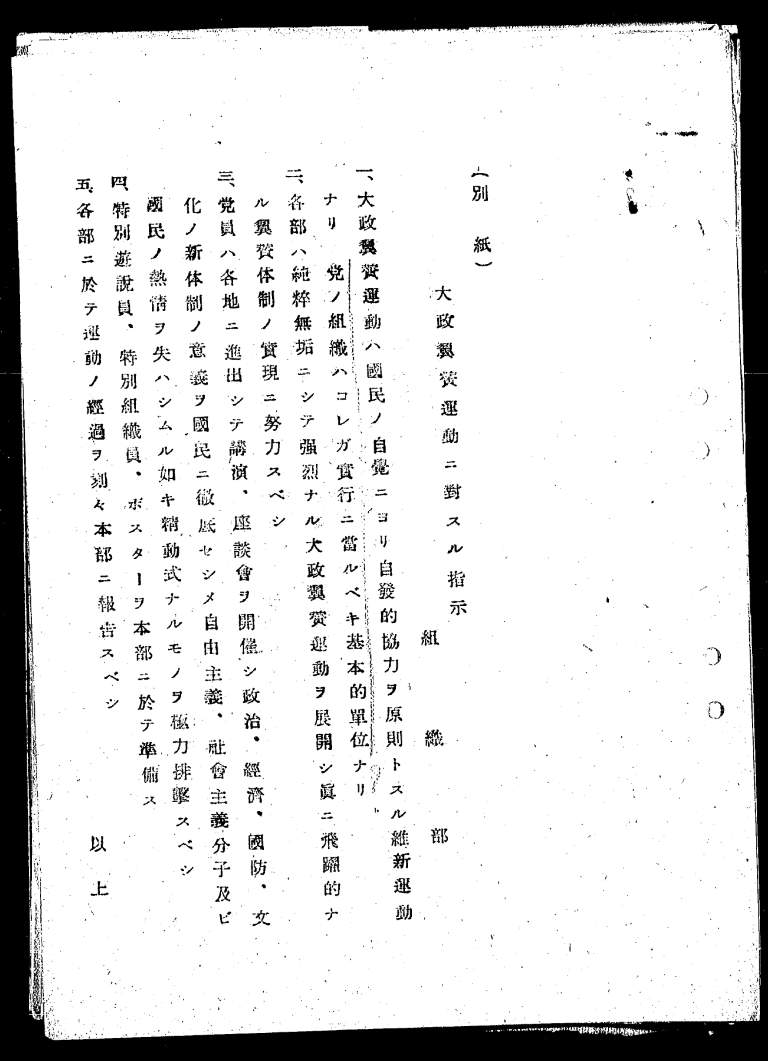 (別紙)
大政翼賛運動ニ對スル指示
組織部
一、大政翼賛運動ハ國民ノ自覺ニヨリ自發的協力ヲ原則トスル維新運動
ナリ 党ノ組織ハコレガ實行ニ當ルベキ基本的單位ナリ
二、各部ハ純粹無垢ニシテ强烈ナル大政翼賛運動ヲ展開シ眞ニ飛躍的ナ
ル翼賛体制ノ實現ニ努力スベシ
三、党員ハ各地ニ進出シテ講演、座談會ヲ開催シ政治、經濟、國防、文
化ノ新体制ノ意義ヲ國民ニ徹底セシメ自由主義、社會主義分子及ビ
國民ノ熱情ヲ失ハシムル如キ精動式ナルモノヲ極力排擊スベシ
四、特別遊說員、特別組織員、ポスターヲ本部ニ於テ準備ス
五、各部ニ於テ運動ノ經過ヲ刻々本部ニ報告スベシ
以上